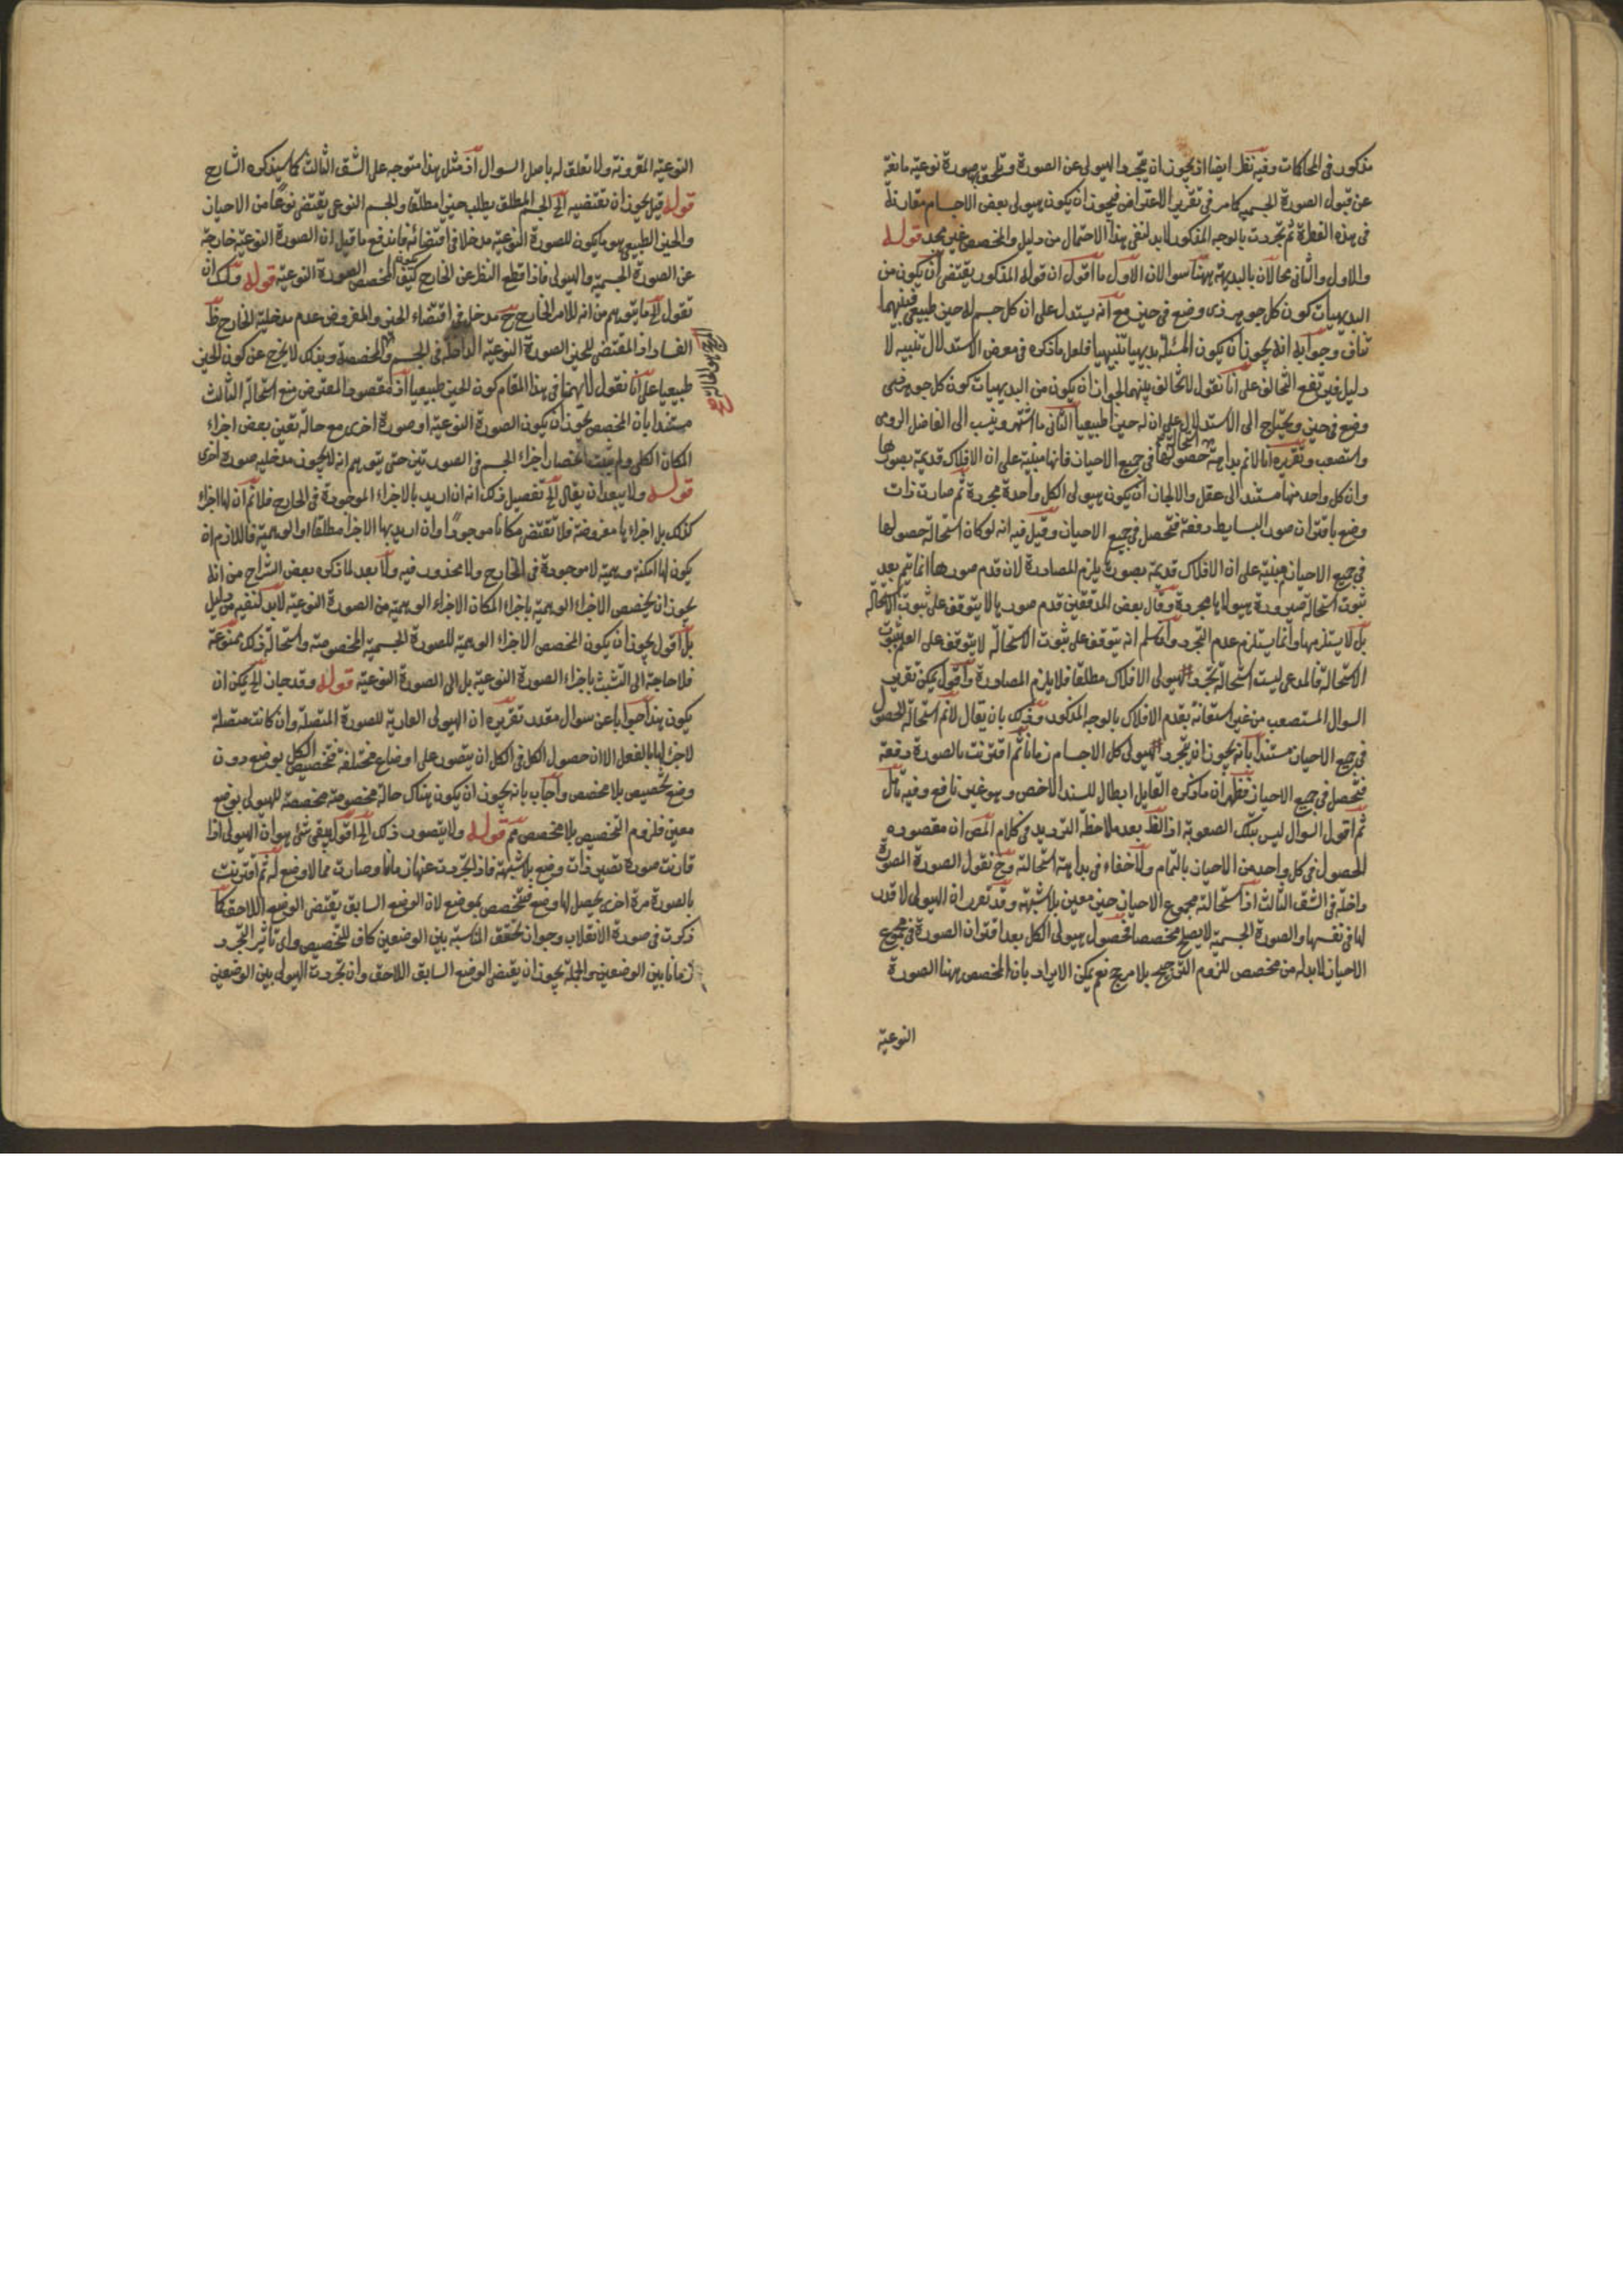 مذكور فى المحاكمات وفيه نظر ايضا اذ يجوز ان يتجرد الهيولى عن الصورة وتلحق صورة نوعية مانعة
عن قبول الصورة الجسمية كما مر فى تقرير الاعتراض فيجوز ان يكون هيولى بعض الاجسام مقارنة
فى هذه الفطرة ثم تجردت بالوجه المذكور لابد لنفى هذا الاحتمال من دليل والمخصص غير مجد قوله
والاول والثانى محالان بالبديهة ههنا سوالان الاول ما اقول ان قوله المذكور يقتضى ان يكون من
البديهيات كون كل جوهر ذى وضع فى حيز مع انه يستدل على ان كل جسم له حيز طبيعى فبينهما
تناف وجوابه انه يجوز ان يكون المسئلة بديهيا تنبيهيا فلعل ما ذكره فى معرض الاستدلال تنبيه لا
دليل فيرتفع التخالف على انا نقول لا تخالف بينهما لجواز ان يكون من البديهيات كون كل جوهر ذى
وضع فى حيز ويحتاج الى الاستدلال على ان له حيزا طبيعيا الثانى ما اشتهر وينسب الى الفاضل الرومى
واستصعب وتقريره انا لا نم بداهة استحالة حصولها فى جميع الاحياز فانها مبنية على ان الافلاك قديمة بصورها
وان كل واحد منها مستند الى عقل والا لجاز ان يكون هيولى الكل واحدة مجردة ثم صارت ذات
وضع باقتران صور البسايط دفعة فتحصل فى جميع الاحياز وقيل فيه انه لو كان استحالة حصولها
فى جميع الاحياز مبنية على ان الافلاك قديمة بصورة يلزم المصادرة لان قدم صورها انما يتم بعد
ثبوت استحالة صيرورة هيولاها مجردة وقال بعض المدققين قدم صورها لا يتوقف على ثبوت الاستحالة
بل لا يستلزمها وانما يستلزم عدم التجرد ولئن سلم انه يتوقف على ثبوت الاستحالة لا يتوقف على العلم بثبوت
الاستحالة فالمدعى ليست استحالة تجرد هيولى الافلاك مطلقا فلا يلزم المصادرة واقول يمكن تقرير
السوال المستصعب من غير استعانة بقدم الافلاك بالوجه المذكور وذلك بان يقال لا نم استحالة الحصول
فى جميع الاحياز مستندا بانه يجوز ان يتجرد هيولى كل الاجسام زمانا ثم اقترنت بالصورة دفعة
فتحصل فى جميع الاحياز فظهر ان ما ذكره القايل ابطال للسند الاخص وهو غير نافع وفيه تأمل
ثم اقول السوال ليس بتلك الصعوبة اذ الظ بعد ملاحظة الترديد فى كلام المص ان مقصوده
الحصول فى كل واحد من الاحياز بالتمام ولا خفاء فى بداهة استحالته وح نقول الصورة المصورة
داخلة فى الشق الثالث اذ استحالة مجموع الاحياز حيز معين بلا شبهة وقد تقرر ان الهيولى لا قدر
لها فى نفسها والصورة الجسمية لا يصلح مخصصا فحصول هيولى الكل بعد اقتران الصورة فى مجموع
الاحياز لابد له من مخصص للزوم الترجيح بلا مرجح نعم يمكن الايراد بان المخصص ههنا الصورة
النوعية
النوعية المقرونة ولا تعلق له باصل السوال اذ مثل هذا متوجه على الشق الثالث كما سيذكره الشارح
قوله قيل يجوز ان تقتضيه الخ الجسم المطلق يطلب حيزا مطلقا والجسم النوعى يقتضى نوعا من الاحياز
والحيز الطبيعى هو ما يكون للصورة النوعية مدخلا فى اقتضائه فاندفع ما قيل ان الصورة النوعية خارجة
عن الصورة الجسمية والهيولى فاذا قطع النظر عن الخارج كيف يكون المخصص الصورة النوعية قوله ولك ان
تقول الخ ما يتوهم من انه للامر الخارج ح مدخل فى اقتضاء الحيز والمفروض عدم مدخلية الخارج ظ
الفساد اذ المقتضى للحيز الصورة النوعية الداخلة فى الجسم والمخصصة وبذلك لا يخرج عن كون الحيز
طبيعيا على انا نقول لا يهمنا فى هذا المقام كون الحيز طبيعيا اذ مقصود المعترض منع استحالة الثالث
مستندا بان المخصص يجوز ان يكون الصورة النوعية او صورة اخرى مع حالة تعين بعض اجزاء
المكان الكلى ولم يثبت انحصار اجزاء الجسم فى الصورتين حتى يتوهم انه لا يجوز مدخلية صورة اخرى
قوله ولا يبعد ان يقال الخ تفصيل ذلك انه ان اريد بالاجزاء الموجودة فى الخارج فلا نم ان لها اجزاء
كذلك بل اجزاءها مفروضة فلا تقتضى مكانا موجودا وان اريد بها الاجزاء مطلقا او الوهمية فاللازم ان
يكون لها امكنة وهمية لا موجودة فى الخارج ولا محذور فيه ولا بعد لما ذكره بعض الشراح من انه
يجوز ان يخصص الاجزاء الوهمية باجزاء المكان الاجزاء الوهمية من الصورة النوعية لابد لنفيه من دليل
بل اقول يجوز ان يكون المخصص الاجزاء الوهمية للصورة الجسمية المخصوصة واستحالة ذلك ممنوعة
فلا حاجة الى التشبث باجزاء الصورة النوعية بل الى الصورة النوعية قوله وقد جاز الخ يمكن ان
يكون هذا جوابا عن سوال مقدر تقريره ان الهيولى العارية للصورة المتصلة وان كانت متصلة
لا جزء لها بالفعل الا ان حصول الكل فى الكل ان يتصور على اوضاع مختلفة فتخصيص الكل بوضع دون
وضع تخصيص بلا مخصص واجاب بانه يجوز ان يكون هناك حالة مخصوصة مخصصة للهيولى بوضع
معين فلزوم التخصيص بلا مخصص مم قوله ولا يتصور ذلك الخ اقول يبقى شئ هو ان الهيولى اذا
قارنت صورة تصير ذات وضع بلا شبهة فاذا تجردت عنها زمانا وصارت مما لا وضع له ثم اقترنت
بالصورة مرة اخرى يحصل لها وضع فتخصص بموضع لان الوضع السابق يقتضى الوضع اللاحق كما
ذكرت فى صورة الانقلاب وجواز تحقق المناسبة بين الوضعين كاف للتخصيص واى تأثير لتجرد
زمانا بين الوضعين وبالجملة يجوز ان يقتضى الوضع السابق اللاحق وان تجردت الهيولى بين الوضعين